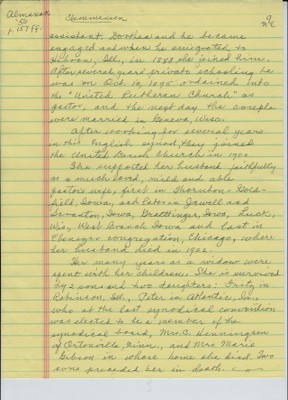 Almanak
'50
p. 157 ff.
Clemmensen
9
assistant. Dorthea and he became
engaged and when he emigrated to
Ill., in 1892 she joined him.
After several years private schooling he
was on Oct. 16, 1895 ordained into
the "United Lutheran Church" as
pastor, and the next day the couple
were married in Geneva, Wisc.
After working for several years
in this English synod, they joined
the United Danish Church in 190
She supported her husband faithfully
as a much loved, mild and able
pastor's wife, first in Thornton - Gold-
field, Iowa, and later in Jewell and
Scranton, Iowa, Graettinger, Iowa, Luck,
Wis., West Branch Iowa and last in
Ebenezer congregation, Chicago, where
her husband died in 192
For many years as a widow were
spent with her children. She is survived
by 2 sons and two daughters:
Robinson, Ill., Peter in Atlantic, Ia.,
who at the last synodical convention
was elected to be a member of the
synodical board, Mrs. C. Henningsen
of Ortonville, Minn., and Mrs. Marie
Gibson in whose home she died. Two
sons preceded her in death.